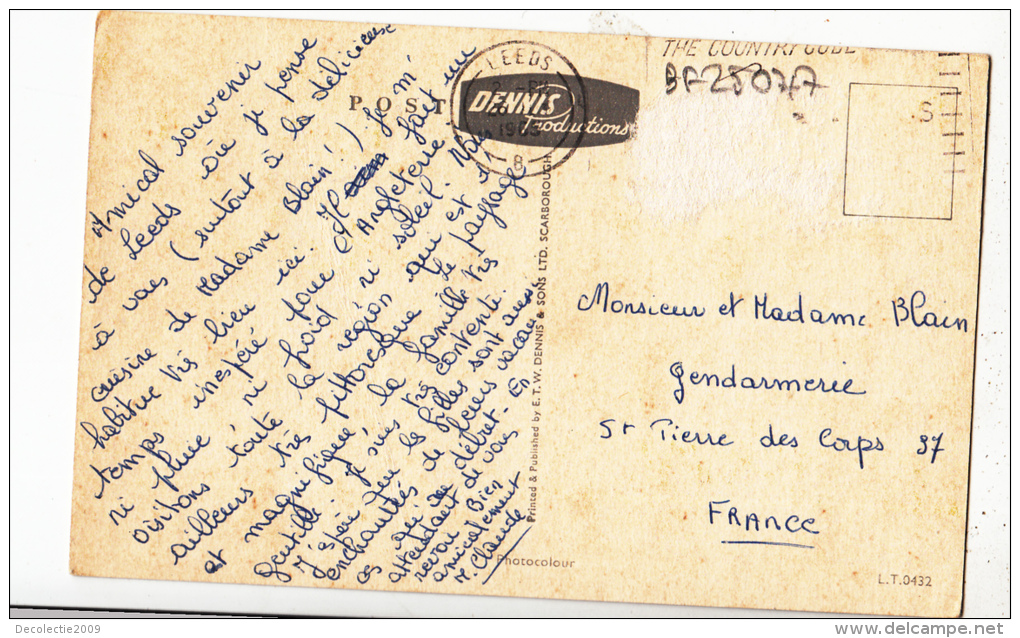 THE COUNTRY CODE
BF28077
LEEDS
1965
8
S
POST
DENNIS
Productions
Amical souvenir
de Leeds où je pense
à vous (surtout à la délicieuse
cuisine de Madame Blain!) Je m'
habitue très bien ici. Il fait un
temps inespéré pour l'Angleterre
ni pluie, ni froid ni soleil. Nous
visitons toute la région qui est d'
ailleurs très pittoresque le paysage
et magnifique, la famille très
gentille je suis très contente.
J'espère que les filles sont aussi
enchantées de leurs vacan
ces au début - En
attendant de vous
revoir Bien
amicalement
M. Claude
Printed & Published by E. T. W. DENNIS & SONS LTD. SCARBOROUGH
Photocolour
Monsieur et Madame Blain
Gendarmerie
St Pierre des Corps 37
FRANCE
L.T.0432
Decolectie2009
delcampe.net